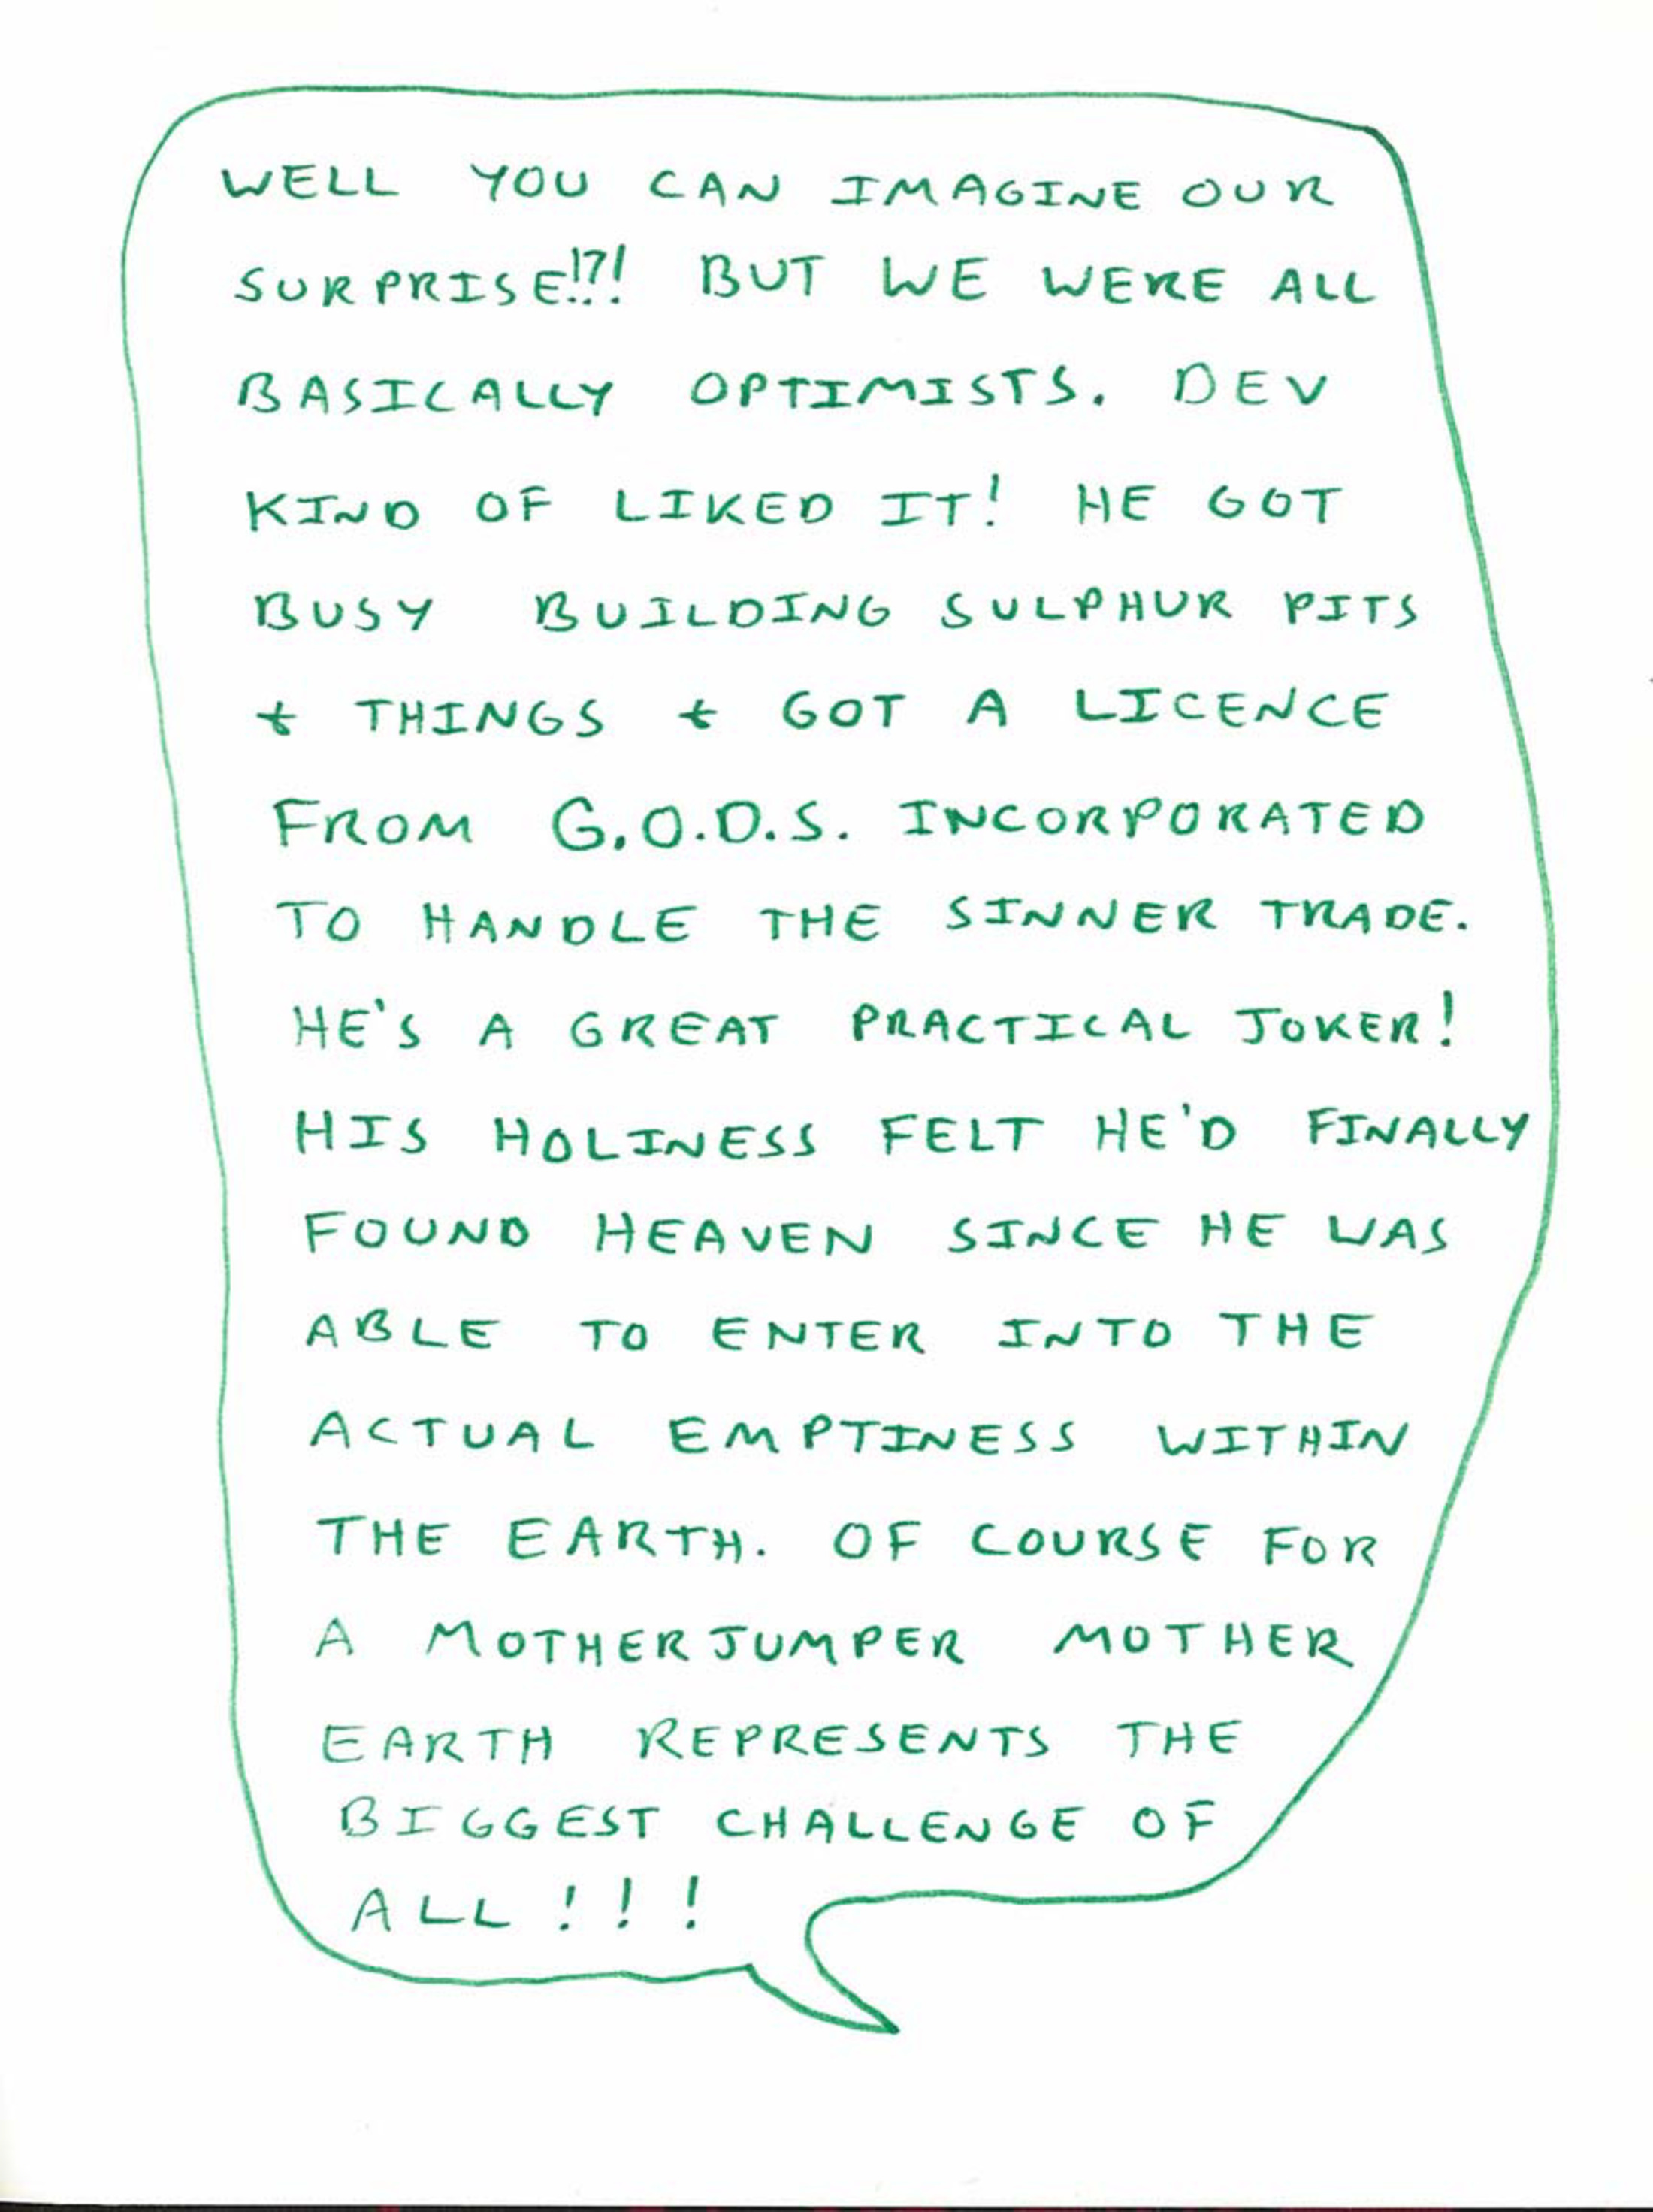 WELL YOU CAN IMAGINE OUR
SURPRISE!?! BUT WE WERE ALL
BASICALLY OPTIMISTS. DEV
KIND OF LIKED IT! HE GOT
BUSY BUILDING SULPHUR PITS
+ THINGS + GOT A LICENCE
FROM G.O.D.S. INCORPORATED
TO HANDLE THE SINNER TRADE.
HE'S A GREAT PRACTICAL JOKER!
HIS HOLINESS FELT HE'D FINALLY
FOUND HEAVEN SINCE HE WAS
ABLE TO ENTER INTO THE
ACTUAL EMPTINESS WITHIN
THE EARTH. OF COURSE FOR
A MOTHERJUMPER MOTHER
EARTH REPRESENTS THE
BIGGEST CHALLENGE OF
ALL!!!